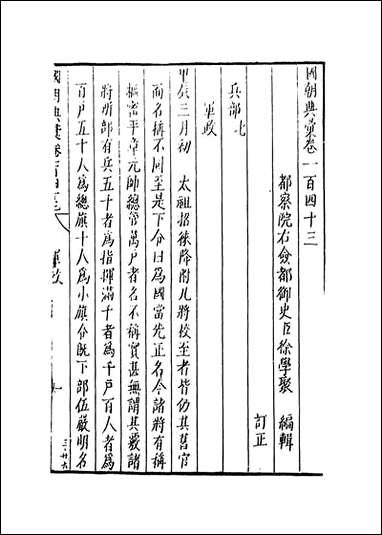 國朝典彙卷一百四十三
都察院右僉都御史臣徐學聚 編輯
訂正
兵部七
軍政
甲辰三月初 太祖招徠降附凡將校至者皆仍其舊官
而名稱不同至是下令曰為國當先正名今諸將有稱
樞密平章元帥總管萬戶者名不稱實甚無謂其覈諸
將所部有兵五千者為指揮滿千者為千戶百人者為
百戶五十人為總旗十人為小旗令既下部伍嚴明名
國朝典彙卷一百四十三
軍政
一